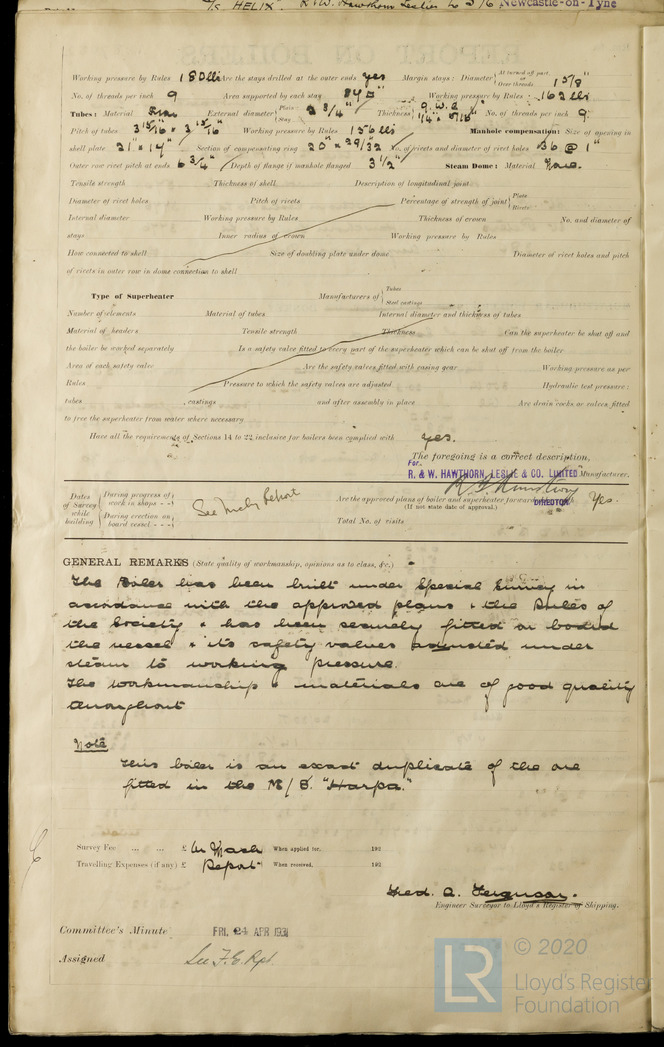 "HELIX". R & W. Hawthorn Leslie & Co Newcastle-on-Tyne
REPORT ON BOILERS
Working pressure by Rules 180 lbs Are the stays drilled at the outer ends yes Margin stays: Diameter { At turned off part, or Over threads 1 5/8"
No. of threads per inch 9 Area supported by each stay 84 □" Working pressure by Rules 162 lbs
Tubes: Material Iron External diameter { Plain Stay 2 3/4" Thickness { 9 W.G. 1/4" & 5/16" No. of threads per inch 9
Pitch of tubes 3 15/16" × 3 15/16" Working pressure by Rules 156 lbs Manhole compensation: Size of opening in
shell plate 21" × 17" Section of compensating ring 20" × 29/32 No. of rivets and diameter of rivet holes 36 @ 1"
Outer row rivet pitch at ends 6 3/4" Depth of flange if manhole flanged 3 1/2" Steam Dome: Material None.
Tensile strength Thickness of shell Description of longitudinal joint
Diameter of rivet holes Pitch of rivets Percentage of strength of joint { Plate Rivets
Internal diameter Working pressure by Rules Thickness of crown No. and diameter of
stays Inner radius of crown Working pressure by Rules
How connected to shell Size of doubling plate under dome Diameter of rivet holes and pitch
of rivets in outer row in dome connection to shell
Type of Superheater Manufacturers of { Tubes Steel castings
Number of elements Material of tubes Internal diameter and thickness of tubes
Material of headers Tensile strength Thickness Can the superheater be shut off and
the boiler be worked separately Is a safety valve fitted to every part of the superheater which can be shut off from the boiler
Area of each safety valve Are the safety valves fitted with easing gear Working pressure as per
Rules Pressure to which the safety valves are adjusted Hydraulic test pressure:
tubes , castings and after assembly in place Are drain cocks or valves fitted
to free the superheater from water where necessary
Have all the requirements of Sections 14 to 22 inclusive for boilers been complied with yes.
The foregoing is a correct description,
For. R. & W. HAWTHORN, LESLIE & CO. LIMITED Manufacturer.
DIRECTOR
Dates of Survey while building { During progress of work in shops - - } { During erection on board vessel - - - } See Mchy Report Are the approved plans of boiler and superheater forwarded Yes.
(If not state date of approval.)
Total No. of visits
GENERAL REMARKS (State quality of workmanship, opinions as to class, &c.)
The Boiler has been built under Special Survey in
accordance with the approved plans & the Rules of
the Society & has been securely fitted on board
the vessel & its safety valves adjusted under
steam to working pressure.
The workmanship & materials are of good quality
throughout
Note
This boiler is an exact duplicate of the one
fitted in the M/S. "Harpa."
Survey Fee ... ... £ On Mach When applied for, 192
Travelling Expenses (if any) £ Report When received, 192
Fred. A. Ferguson.
Engineer Surveyor to Lloyd's Register of Shipping.
Committee's Minute FRI. 24 APR 1931
Assigned See F.E. Rpt.
© 2020
LR
Lloyd's Register
Foundation